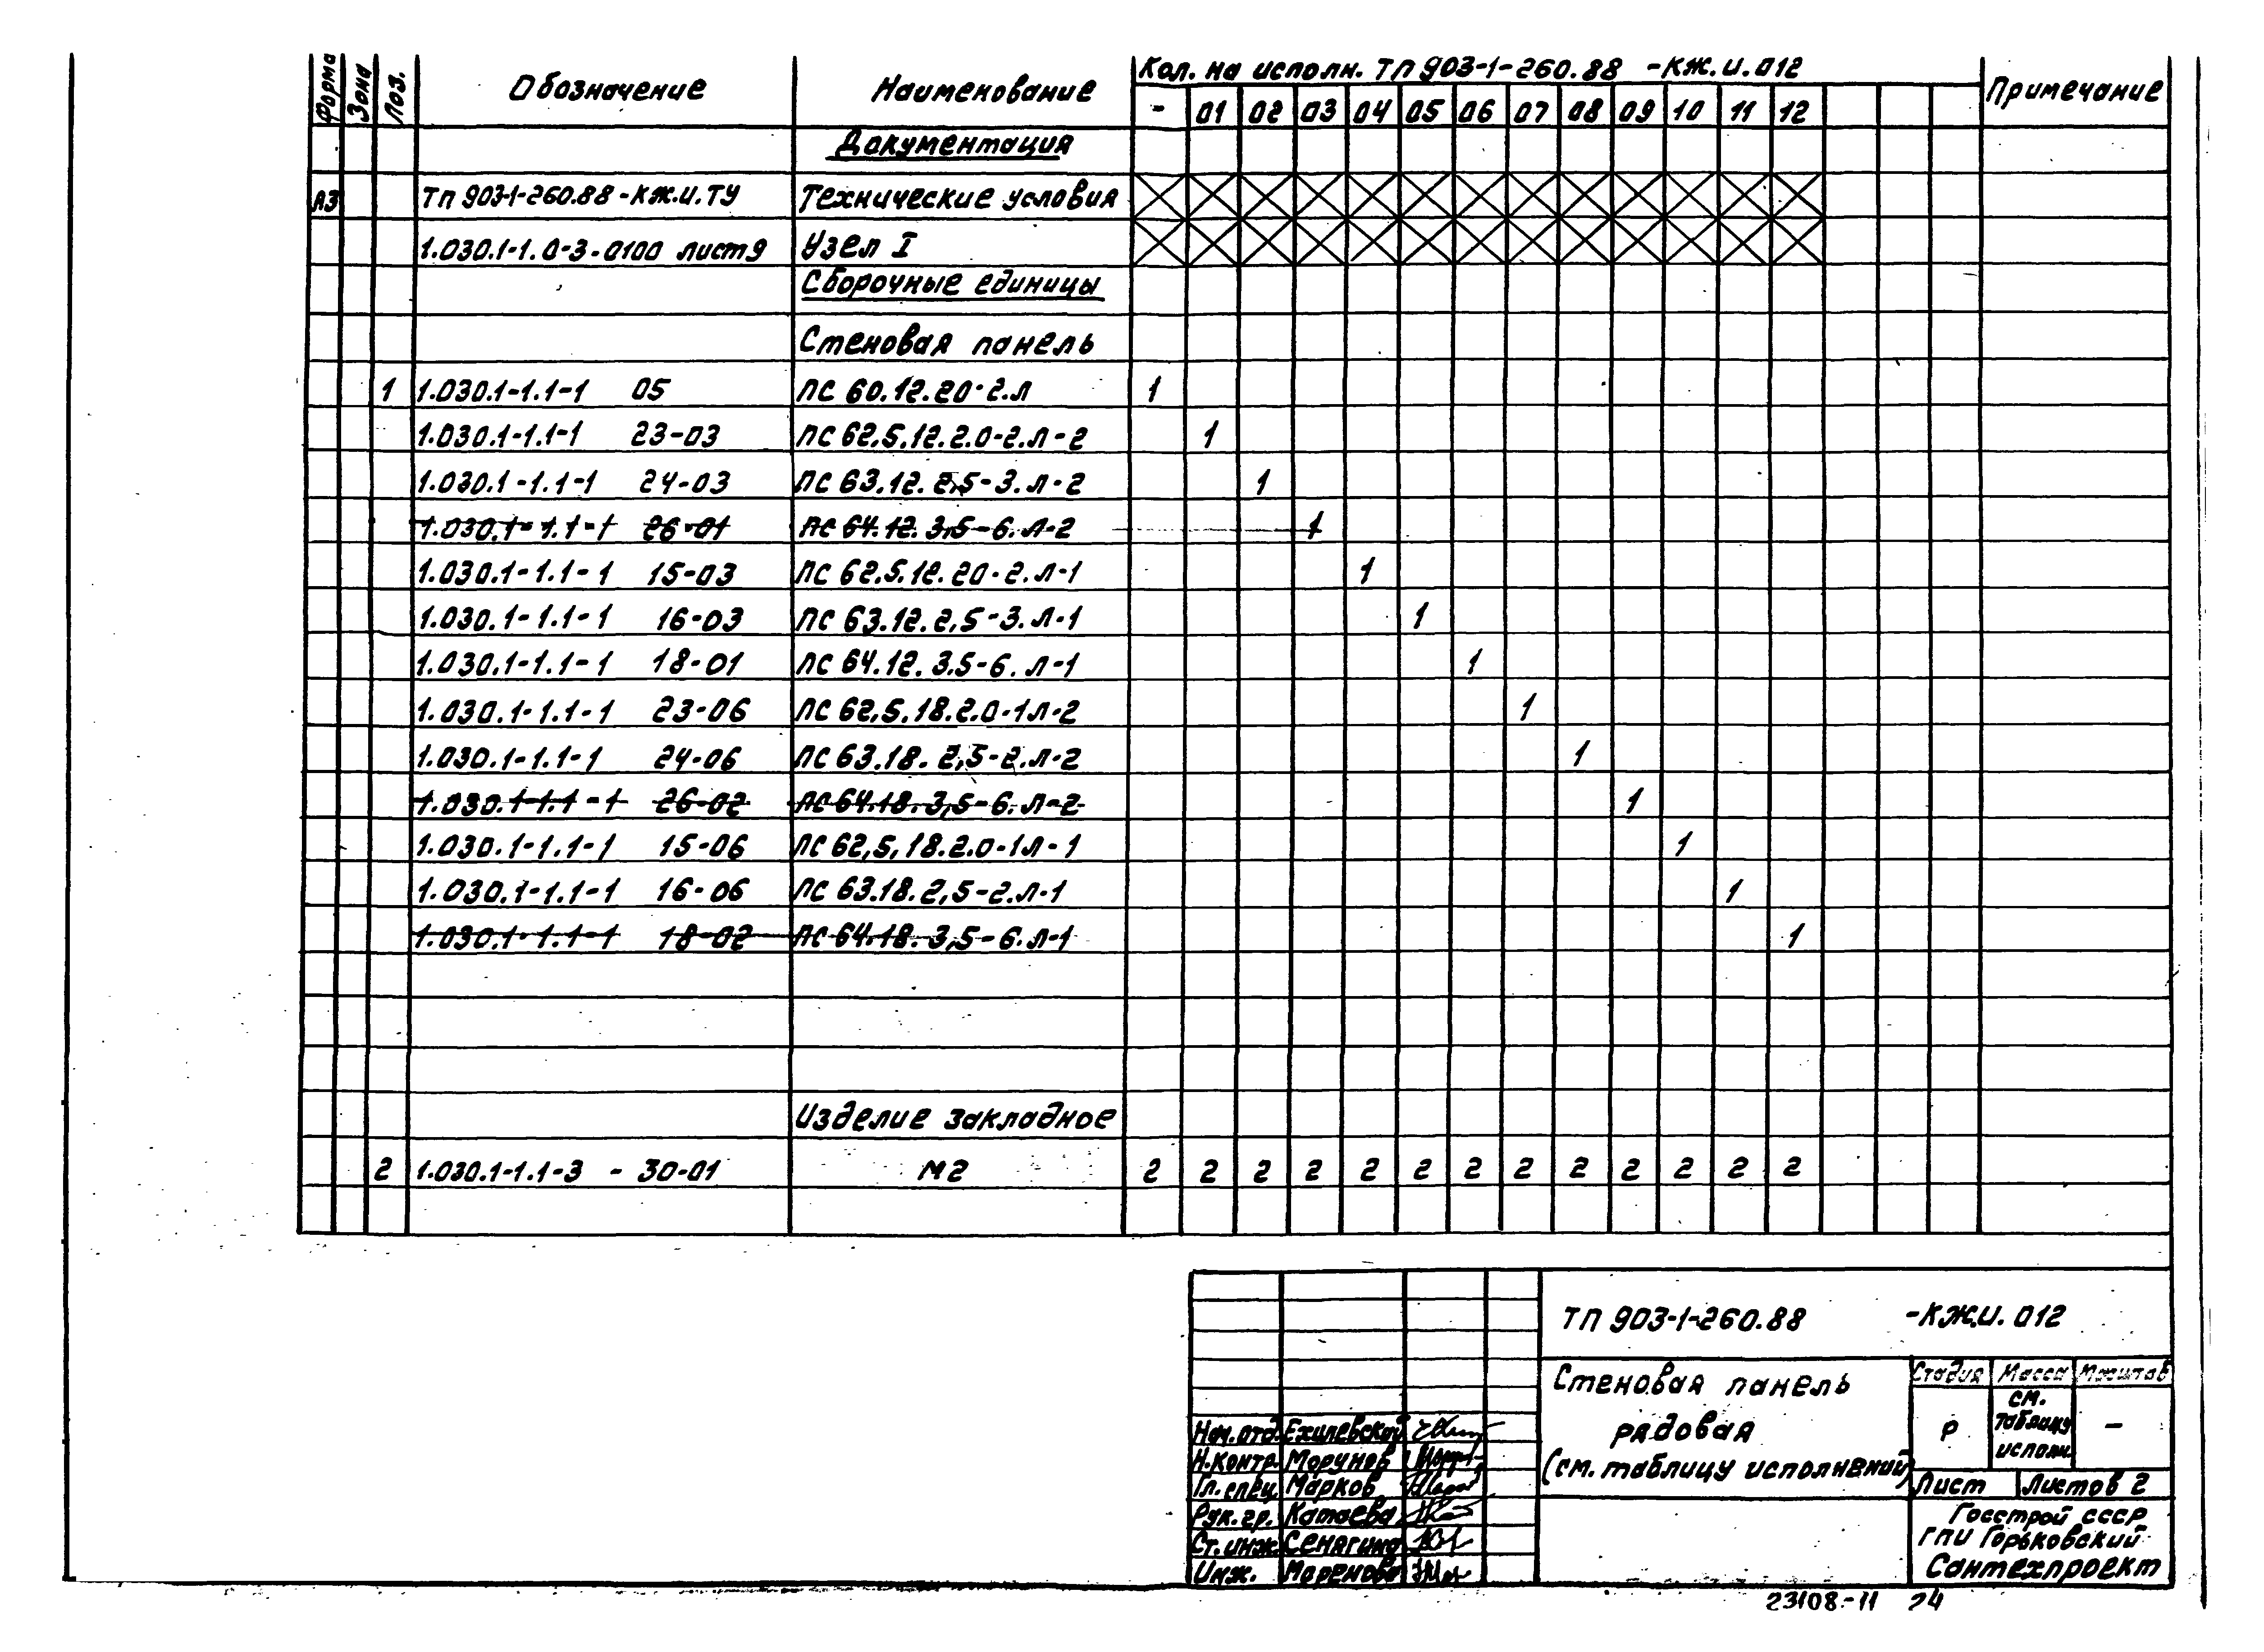 Форма Зона Поз. Обозначение Наименование Кол. на исполн. ТП 903-1-260.88 -КЖ.И.012 Примечание
- 01 02 03 04 05 06 07 08 09 10 11 12
Документация
А3 ТП 903-1-260.88-КЖ.И.ТУ Технические условия
1.030.1-1.0-3-0100 лист 9 Узел I
Сборочные единицы
Стеновая панель
1 1.030.1-1.1-1 05 ПС 60.12.20-2.Л 1
1.030.1-1.1-1 23-03 ПС 62,5.12.2.0-2.Л-2 1
1.030.1-1.1-1 24-03 ПС 63.12.2,5-3.Л-2 1
1.030.1-1.1-1 26-01 ПС 64.12.3,5-6.Л-2 1
1.030.1-1.1-1 15-03 ПС 62,5.12.20-2.Л-1 1
1.030.1-1.1-1 16-03 ПС 63.12.2,5-3.Л-1 1
1.030.1-1.1-1 18-01 ПС 64.12.3.5-6.Л-1 1
1.030.1-1.1-1 23-06 ПС 62,5.18.2.0-1Л-2 1
1.030.1-1.1-1 24-06 ПС 63.18.2,5-2.Л-2 1
1.030.1-1.1-1 26-02 ПС 64.18.3,5-6.Л-2 1
1.030.1-1.1-1 15-06 ПС 62,5,18.2.0-1Л-1 1
1.030.1-1.1-1 16-06 ПС 63.18.2,5-2.Л-1 1
1.030.1-1.1-1 18-02 ПС 64.18.3,5-6.Л-1 1
Изделие закладное
2 1.030.1-1.1-3 - 30-01 М2 2 2 2 2 2 2 2 2 2 2 2 2 2
ТП 903-1-260.88 -КЖ.И.012
Стеновая панель
рядовая
(см. таблицу исполнений)
Стадия Масса Масштаб
Р см. таблицу исполн. -
Лист Листов 2
Нач.отд. Ехилевский
Н.контр. Морунов
Гл.спец. Марков
Рук.гр. Катаева
Ст.инж. Сенягина
Инж. Моренова
Госстрой СССР
ГПИ Горьковский
Сантехпроект
23108-11 24